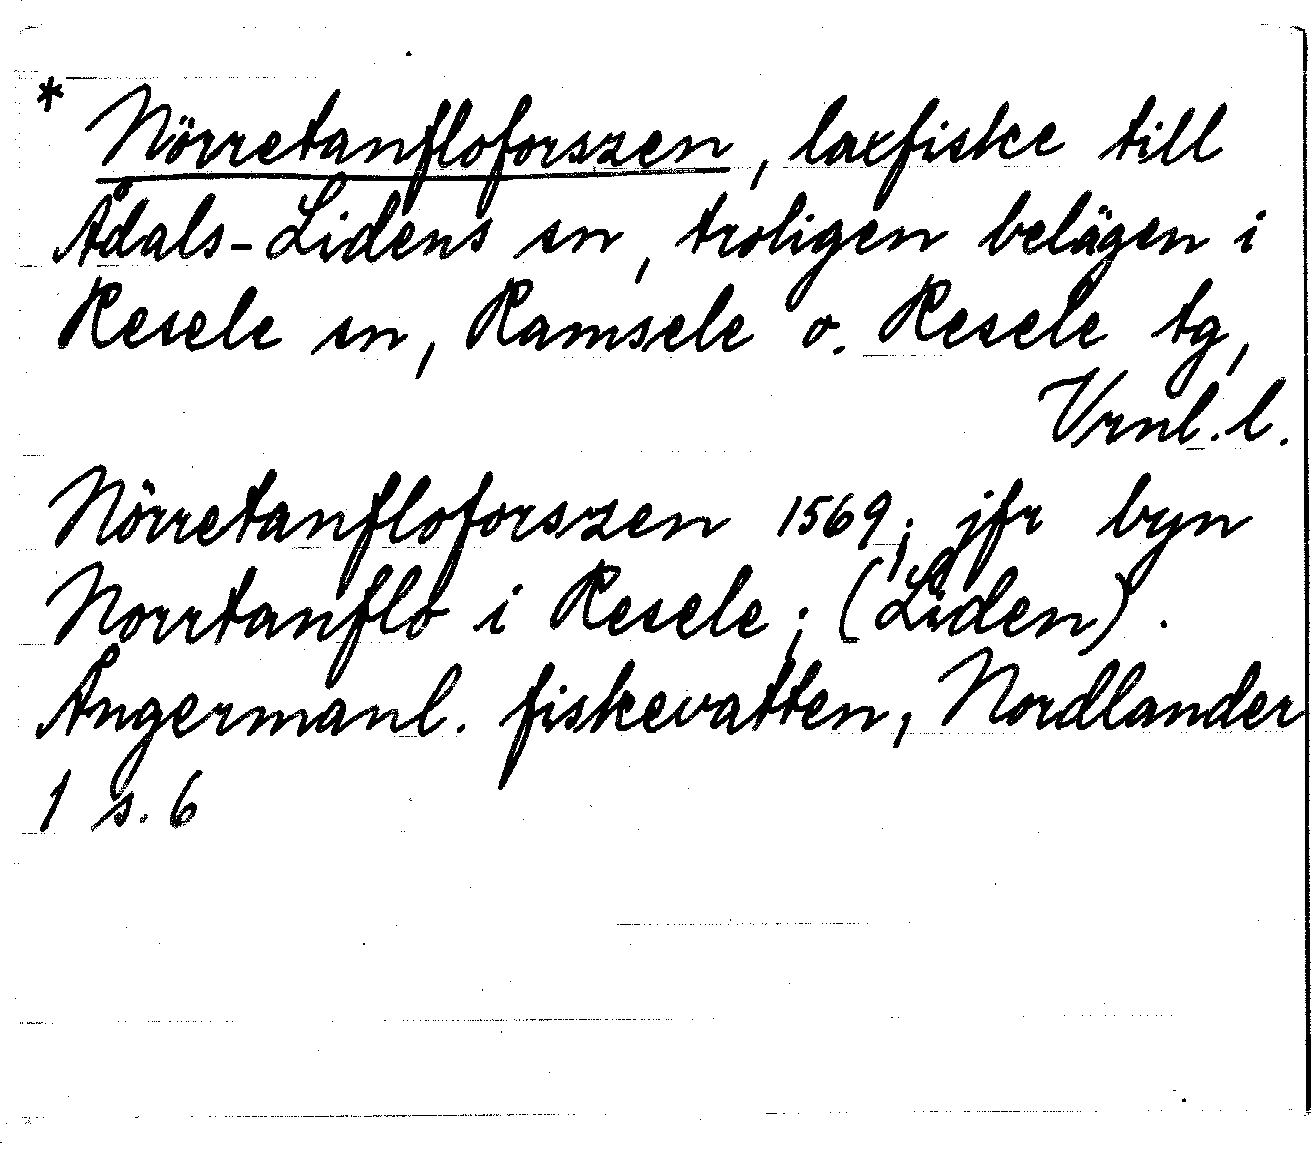 * Nörretanfloforszen, laxfiske till
Ådals-Lidens sn, troligen belägen i
Resele sn, Ramsele o. Resele tg,
Vrnl. l.
Nörretanfloforszen 1569; jfr byn
Norrtanflo i Resele; (Liden).
Ångermanl. fiskevatten, Nordlander
1 s. 6